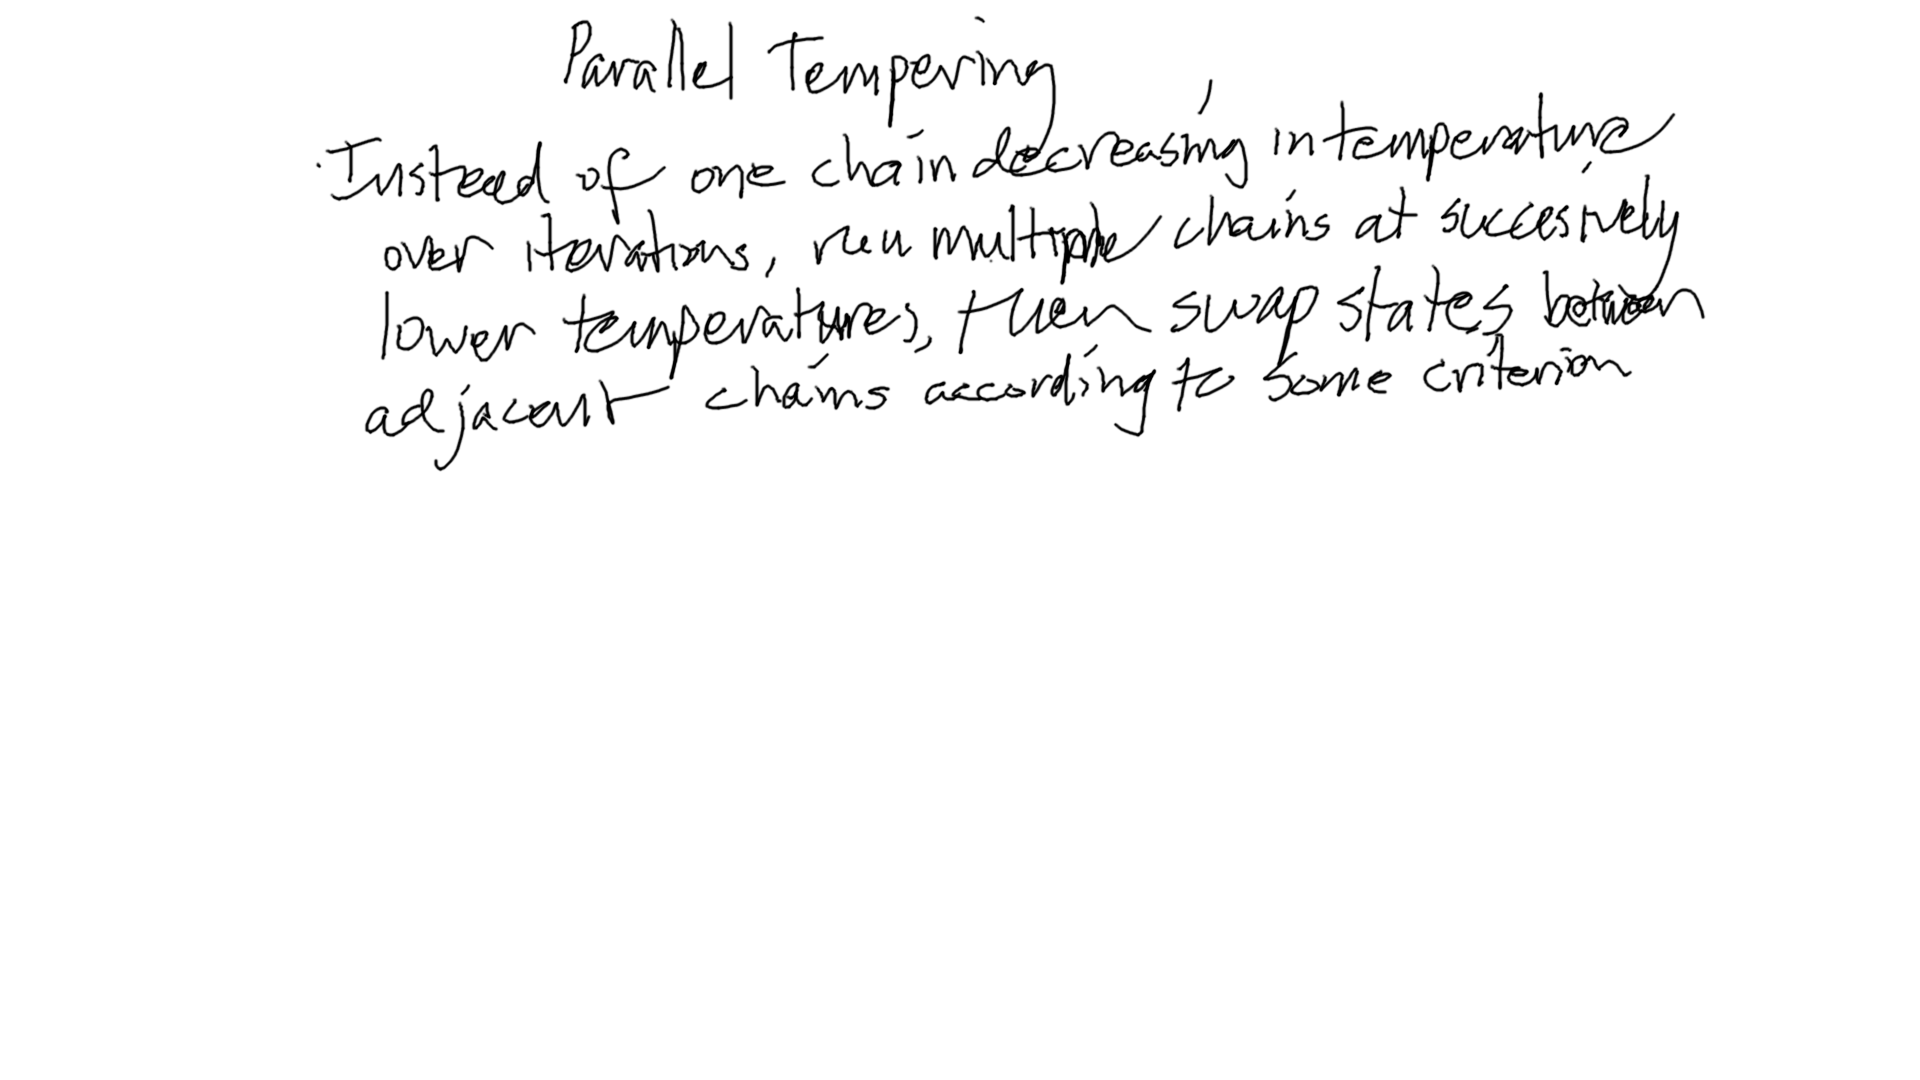 Parallel Tempering
· Instead of one chain decreasing in temperature
over iterations, run multiple chains at succesively
lower temperatures, then swap states between
adjacent chains according to some criterion